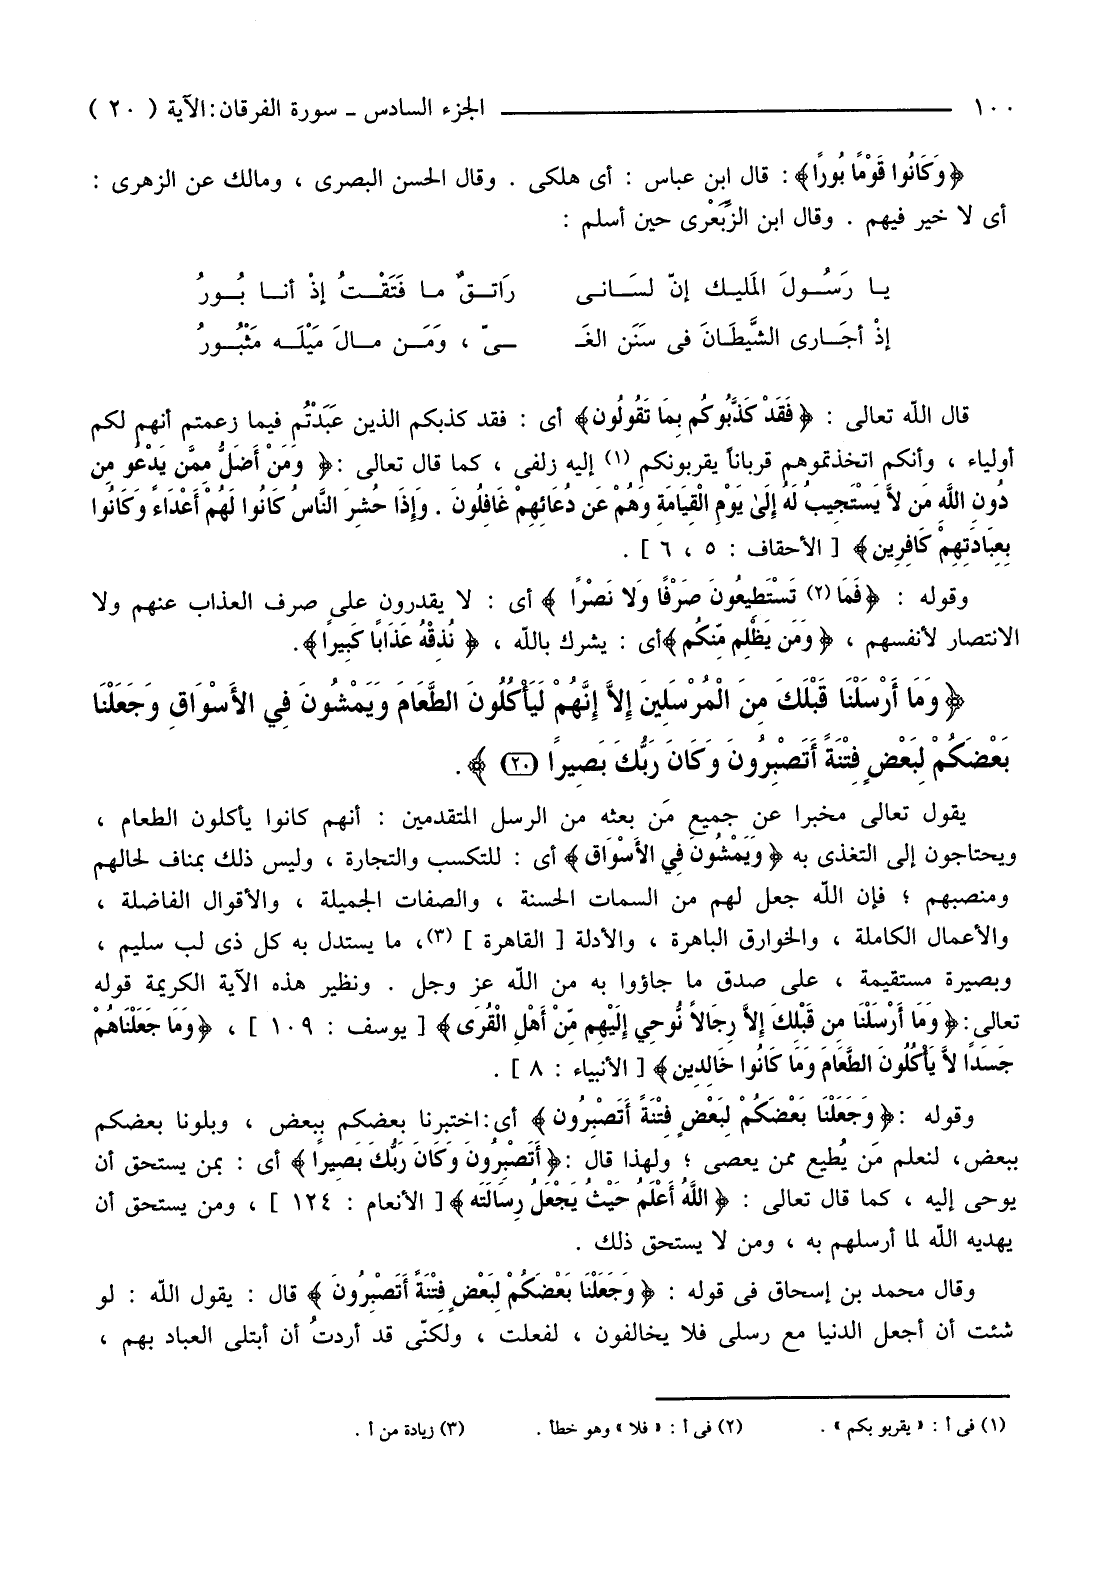 ١٠٠ ــــــ الجزء السادس ـ سورة الفرقان: الآية ( ٢٠ )
﴿وَكَانُوا قَوْمًا بُورًا﴾: قال ابن عباس : أى هلكى . وقال الحسن البصرى ، ومالك عن الزهرى :
أى لا خير فيهم . وقال ابن الزِّبَعْرى حين أسلم :
يـا رَسُـولَ المَليـك إنّ لسَـانى رَاتـقٌ مـا فَتَقْـتُ إذْ أنـا بُـورُ
إذْ أجَـارى الشَّيطَـانَ فى سَنَن الغَـ ـىّ ، وَمَـن مـالَ مَيْلَـه مَثْبُـورُ
قال الله تعالى : ﴿ فَقَدْ كَذَّبُوكُم بِمَا تَقُولُون﴾ أى : فقد كذبكم الذين عَبَدْتُم فيما زعمتم أنهم لكم
أولياء ، وأنكم اتخذتموهم قرباناً يقربونكم (١) إليه زلفى ، كما قال تعالى :﴿ وَمَنْ أَضَلُّ مِمَّن يَدْعُو مِن
دُونِ اللَّهِ مَن لاَّ يَسْتَجِيبُ لَهُ إِلَىٰ يَوْمِ الْقِيَامَةِ وَهُمْ عَن دُعَائِهِمْ غَافِلُونَ . وَإِذَا حُشِرَ النَّاسُ كَانُوا لَهُمْ أَعْدَاءً وَكَانُوا
بِعِبَادَتِهِمْ كَافِرِين﴾ [ الأحقاف : ٥ ، ٦ ] .
وقوله : ﴿فَمَا (٢) تَسْتَطِيعُونَ صَرْفًا وَلا نَصْرًا ﴾ أى : لا يقدرون على صرف العذاب عنهم ولا
الانتصار لأنفسهم ، ﴿ وَمَن يَظْلِم مِّنكُم﴾أى : يشرك بالله ، ﴿ نُذِقْهُ عَذَابًا كَبِيرًا﴾.
﴿ وَمَا أَرْسَلْنَا قَبْلَكَ مِنَ الْمُرْسَلِينَ إِلاَّ إِنَّهُمْ لَيَأْكُلُونَ الطَّعَامَ وَيَمْشُونَ فِي الأَسْوَاقِ وَجَعَلْنَا
بَعْضَكُمْ لِبَعْضٍ فِتْنَةً أَتَصْبِرُونَ وَكَانَ رَبُّكَ بَصِيرًا (٢٠) ﴾ .
يقول تعالى مخبرا عن جميع مَن بعثه من الرسل المتقدمين : أنهم كانوا يأكلون الطعام ،
ويحتاجون إلى التغذى به ﴿ وَيَمْشُونَ فِي الأَسْوَاق﴾ أى : للتكسب والتجارة ، وليس ذلك بمناف لحالهم
ومنصبهم ؛ فإن الله جعل لهم من السمات الحسنة ، والصفات الجميلة ، والأقوال الفاضلة ،
والأعمال الكاملة ، والخوارق الباهرة ، والأدلة [ القاهرة ] (٣)، ما يستدل به كل ذى لب سليم ،
وبصيرة مستقيمة ، على صدق ما جاؤوا به من الله عز وجل . ونظير هذه الآية الكريمة قوله
تعالى:﴿ وَمَا أَرْسَلْنَا مِن قَبْلِكَ إِلاَّ رِجَالاً نُّوحِي إِلَيْهِم مِّنْ أَهْلِ الْقُرَى﴾ [ يوسف : ١٠٩ ] ، ﴿وَمَا جَعَلْنَاهُمْ
جَسَدًا لاَّ يَأْكُلُونَ الطَّعَامَ وَمَا كَانُوا خَالِدِين﴾ [ الأنبياء : ٨ ] .
وقوله :﴿ وَجَعَلْنَا بَعْضَكُمْ لِبَعْضٍ فِتْنَةً أَتَصْبِرُون ﴾ أى:اختبرنا بعضكم ببعض ، وبلونا بعضكم
ببعض، لنعلم مَن يُطيع ممن يعصى ؛ ولهذا قال :﴿ أَتَصْبِرُونَ وَكَانَ رَبُّكَ بَصِيرًا ﴾ أى : بمن يستحق أن
يوحى إليه ، كما قال تعالى : ﴿ اللَّهُ أَعْلَمُ حَيْثُ يَجْعَلُ رِسَالَتَه ﴾[ الأنعام : ١٢٤ ] ، ومن يستحق أن
يهديه الله لما أرسلهم به ، ومن لا يستحق ذلك .
وقال محمد بن إسحاق فى قوله : ﴿ وَجَعَلْنَا بَعْضَكُمْ لِبَعْضٍ فِتْنَةً أَتَصْبِرُونَ ﴾ قال : يقول الله : لو
شئت أن أجعل الدنيا مع رسلى فلا يخالفون ، لفعلت ، ولكنّى قد أردتُ أن أبتلى العباد بهم ،
(١) فى أ : « يقربو بكم » . (٢) فى أ : « فلا » وهو خطأ . (٣) زيادة من أ .